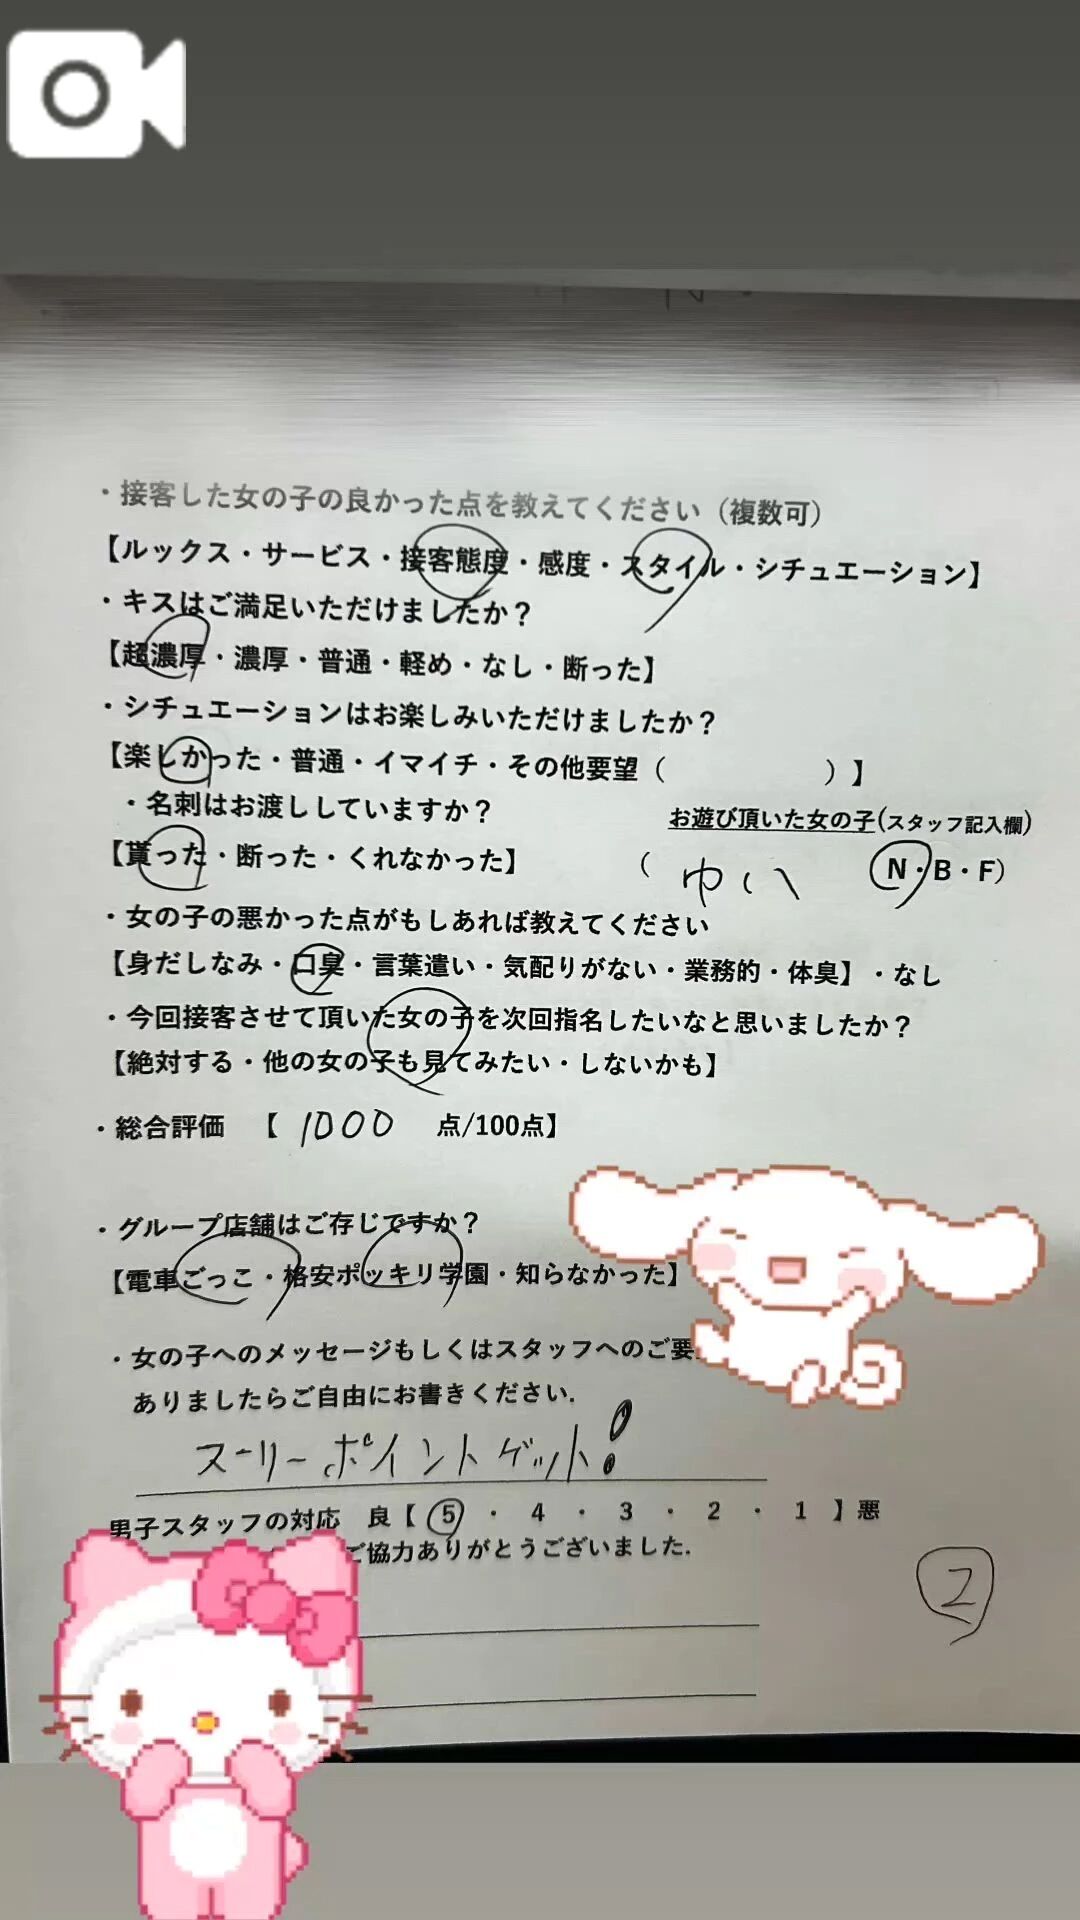 ・接客した女の子の良かった点を教えてください（複数可）
【ルックス・サービス・接客態度・感度・スタイル・シチュエーション】
・キスはご満足いただけましたか？
【超濃厚・濃厚・普通・軽め・なし・断った】
・シチュエーションはお楽しみいただけましたか？
【楽しかった・普通・イマイチ・その他要望（　　　　）】
・名刺はお渡ししていますか？
お遊び頂いた女の子(スタッフ記入欄)
【貰った・断った・くれなかった】
（ ゆい N・B・F）
・女の子の悪かった点がもしあれば教えてください
【身だしなみ・口臭・言葉遣い・気配りがない・業務的・体臭】・なし
・今回接客させて頂いた女の子を次回指名したいなと思いましたか？
【絶対する・他の女の子も見てみたい・しないかも】
・総合評価 【 1000 点/100点】
・グループ店舗はご存じですか？
【電車ごっこ・格安ポッキリ学園・知らなかった】
・女の子へのメッセージもしくはスタッフへのご要
ありましたらご自由にお書きください.
スーリーポイントゲット！
男子スタッフの対応 良【 5 ・ 4 ・ 3 ・ 2 ・ 1 】悪
ご協力ありがとうございました.
2